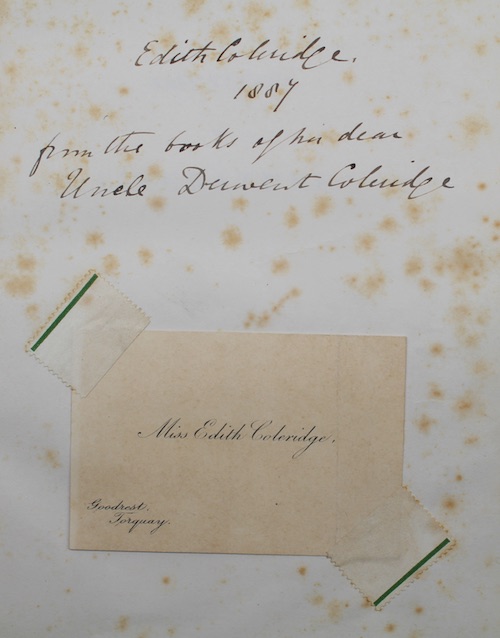 Edith Coleridge.
1887
from the books of her dear
Uncle Derwent Coleridge
Miss Edith Coleridge.
Goodrest.
Torquay.